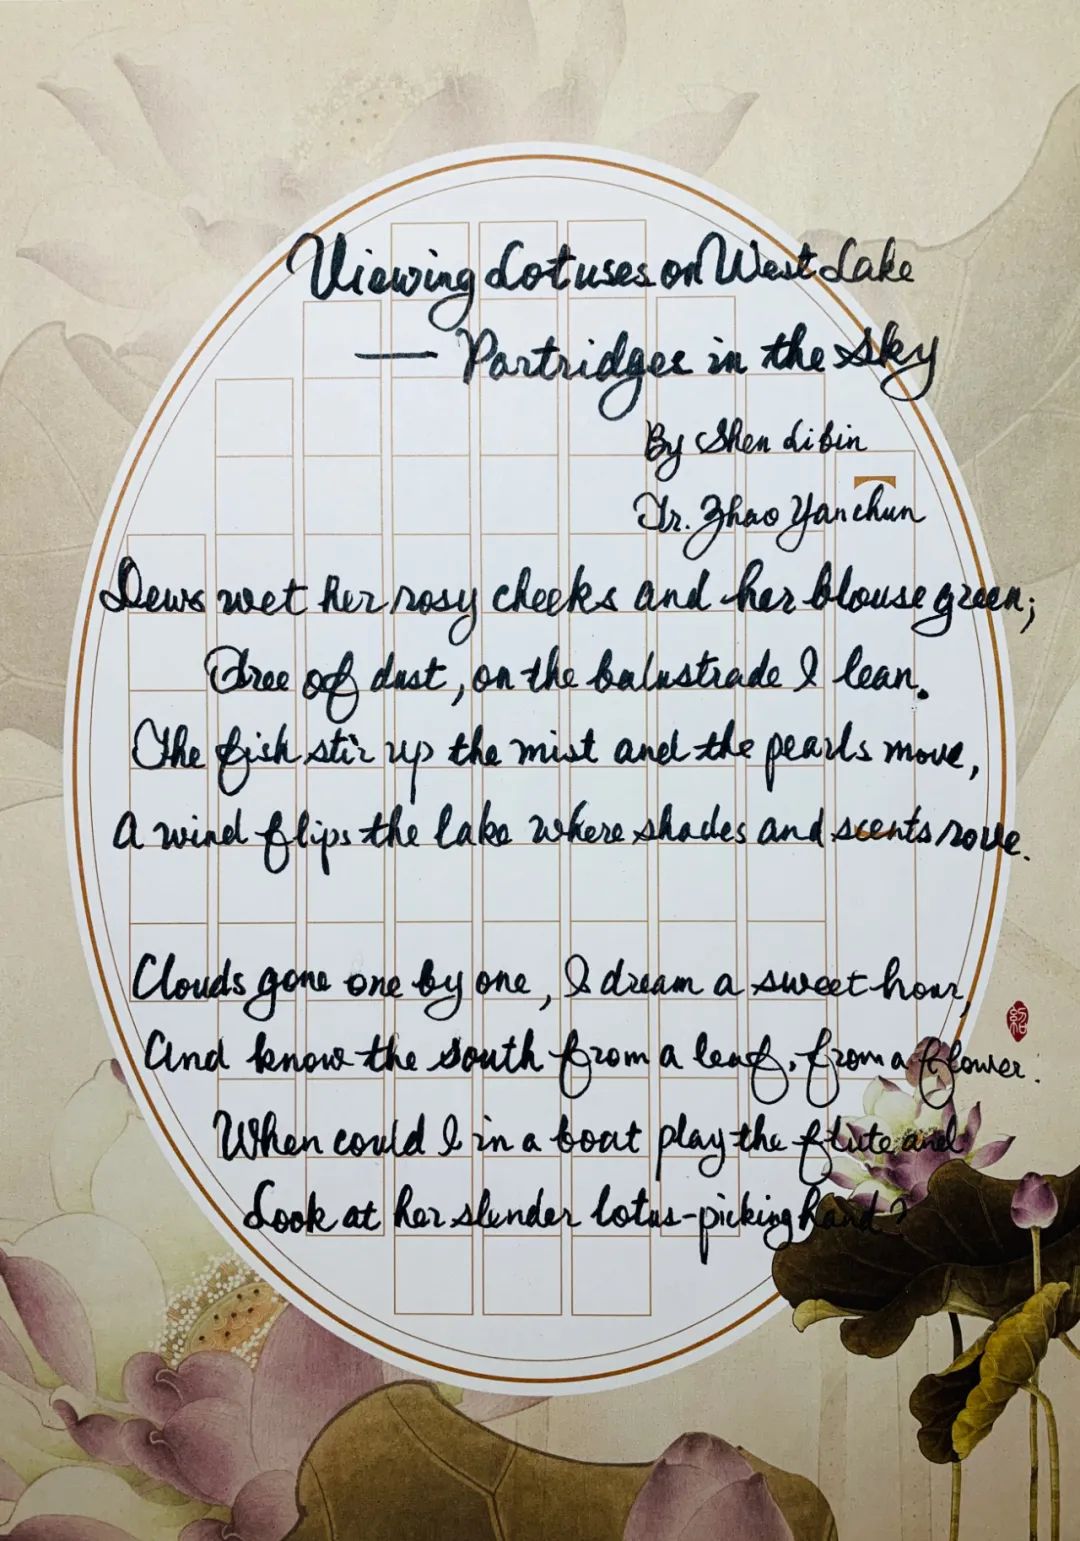 Viewing Lotuses on West Lake
— Partridges in the sky
By Shen Libin
Tr. Zhao Yanchun
Dews wet her rosy cheeks and her blouse green;
Free of dust, on the balustrade I lean.
The fish stir up the mist and the pearls move,
A wind flips the lake where shades and scents rove.
Clouds gone one by one, I dream a sweet hour,
And know the south from a leaf, from a flower.
When could I in a boat play the flute and
Look at her slender lotus-picking hand?